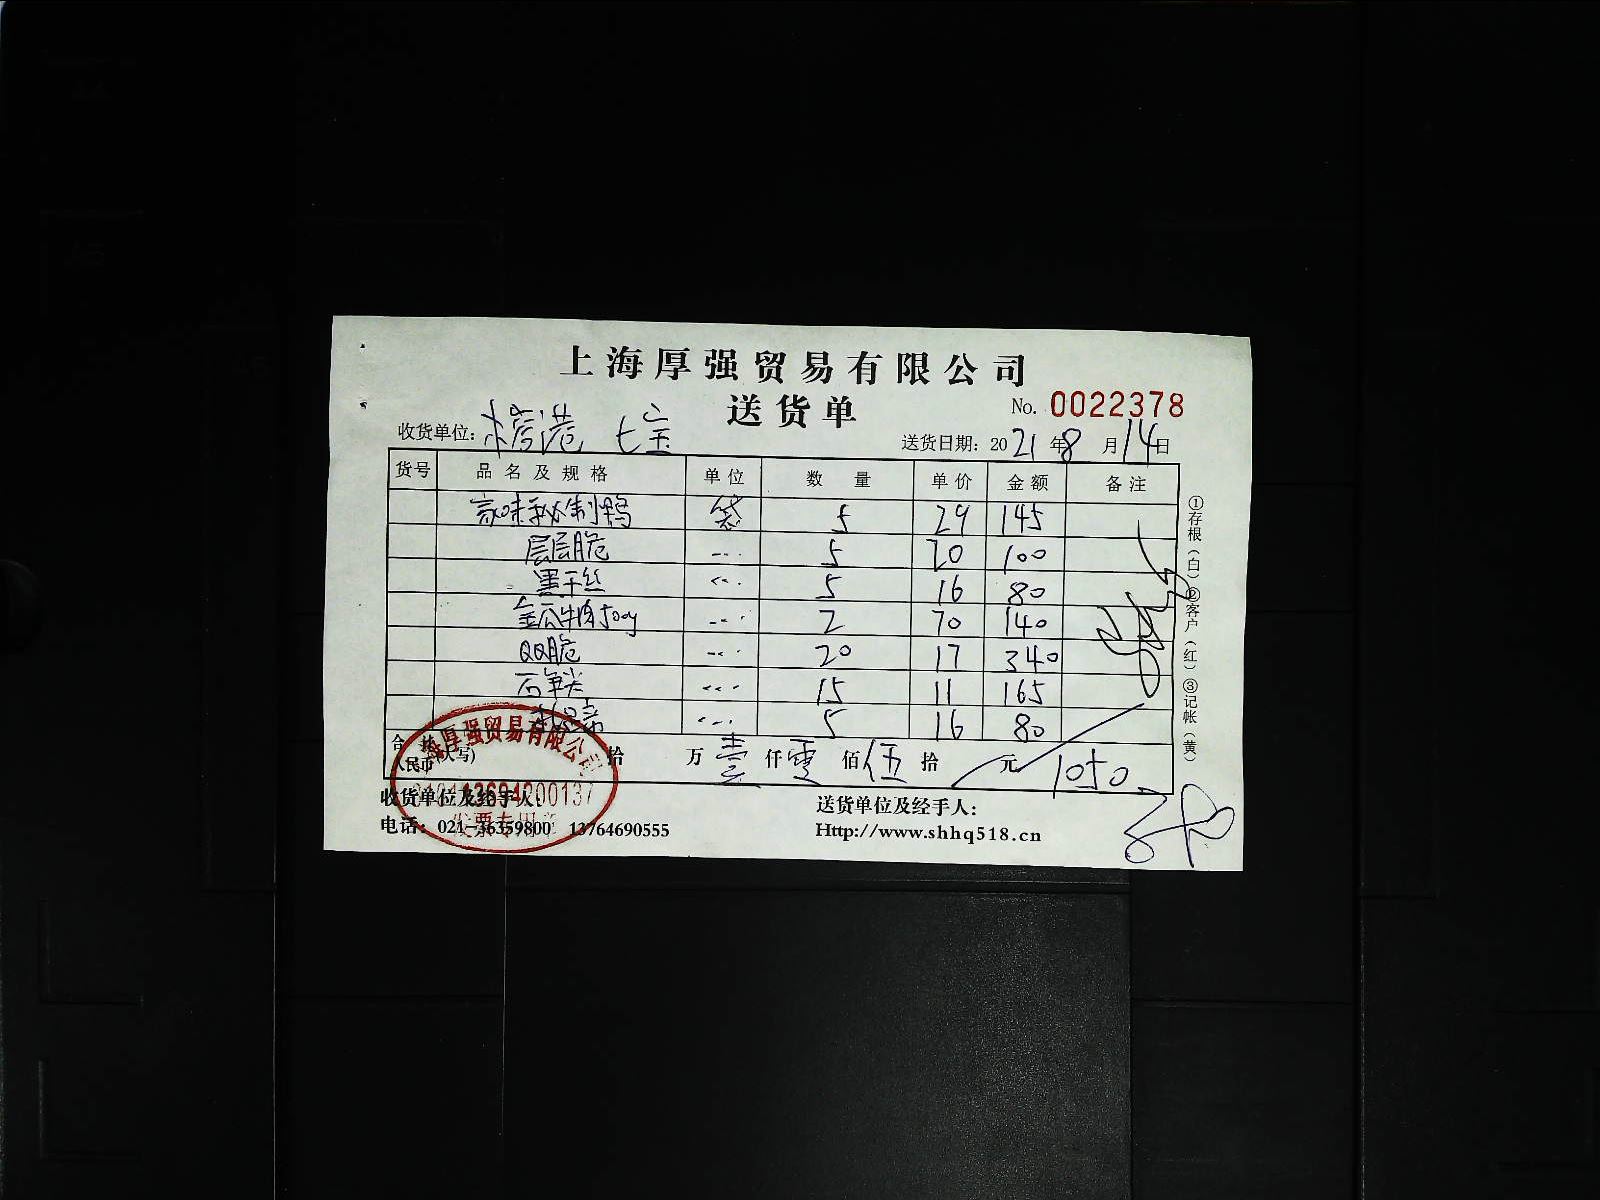 上海厚强贸易有限公司
送货单
No. 0022378
收货单位: 七宝
送货日期: 2021年8月14日
货号 品名及规格 单位 数量 单价 金额 备注
味秘制鸭 袋 5 29 145
层层脆 5 20 100
黑干丝 5 16 80
金瓜牛肉500g 2 70 140
QQ脆 20 17 340
石笋尖 15 11 165
5 16 80
合计
人民币(大写) 拾 万 壹 仟 零 佰 伍 拾 元 1050
收货单位及经手人:
送货单位及经手人:
电话: 021-36359800 13764690555
Http://www.shhq518.cn
①存根(白)②客户(红)③记帐(黄)
厚强贸易有限公司
发票专用章